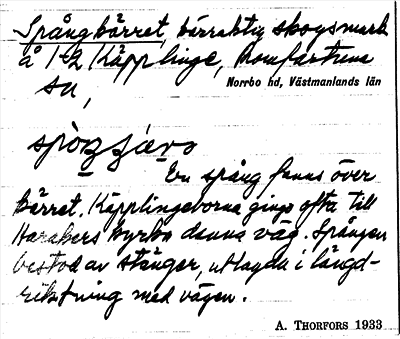 Spångkärret, kärraktig skogsmark
å 1-2 Käpplinge, Romfartuna
sn,
Norrbo hd, Västmanlands län
En spång fanns över
kärret. Käpplingeborna gingo ofta till
Harakers kyrka denna väg. Spången
bestod av stänger, utlagda i längd-
riktning med vägen.
A. THORFORS 1933